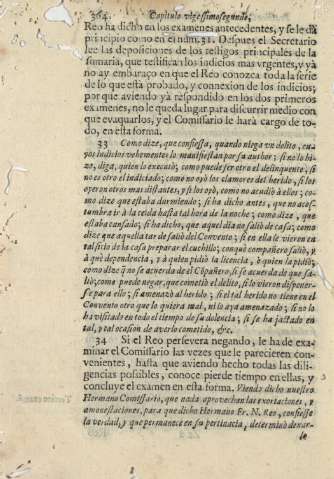 364 Capitulo vigessimosegundo,
Reo ha dicho en los examenes antecedentes, y se le dà
principio como en el num. 31. Despues el Secretario
lee las deposiciones de los testigos principales de la
sumaria, que testifican los indicios mas vrgentes, y yà
no ay embaraço en que el Reo conozca toda la serie
de lo que està probado, y connexion de los indicios;
por que aviendo yà respondido en los dos primeros
examenes, no le queda lugar para discurrir medio con
que evaquarlos, y el Comissario le harà cargo de to-
do, en esta forma.
33 Como dize, que confiessa, quando niega vn delito, cu-
yos indicios vehementes lo manifiestan por su author; si no lo hi-
zo, diga, quien lo executò; como puede ser otro el delinquente, si
no es otro el indiciado; como no oyò los clamores del herido, si los
oyeron otros mas distantes, y si los oyò, como no acudiò à ellos; co-
mo dize que estaba durmiendo; si ha dicho antes, que no acos-
tumbra ir à la celda hasta tal hora de la noche; como dize, que
estaba cansado; si ha dicho, que aquel dia no saliò de casa; como
dize que aquella tarde saliò del Convento; si en ella le vieron en
tal sitio de la casa preparar el cuchillo; con què compañero saliò, y
à què dependencia, y à quien pidiò la licencia, ò quien la pidiò;
como dize q̃ no se acuerda de el Cõpañero, si se acuerda de que sa-
liò; como puede negar, que cometiò el delito, si lo vieron disponer-
se para ello; si amenazò al herido; si el tal herido no tiene en el
Convento otro que lo quiera mal, ni lo aya amenazado; si no lo
ha visitado en todo el tiempo de su dolencia; si se ha jactado en
tal, y tal ocasion de averlo cometido, &c.
34 Si el Reo persevera negando, le ha de exa-
minar el Comissario las vezes que le parecieren con-
venientes, hasta que aviendo hecho todas las dili-
gencias possibles, conoce pierde tiempo en ellas, y
concluye el examen en esta forma. Viendo dicho nuestro
Hermano Comissario, que nada aprovechan las exortaciones, y
amonestaciones, para que dicho Hermano Fr. N. Reo, confiesse
la verdad, y que permanece en su pertinacia, determinò dexar-
le